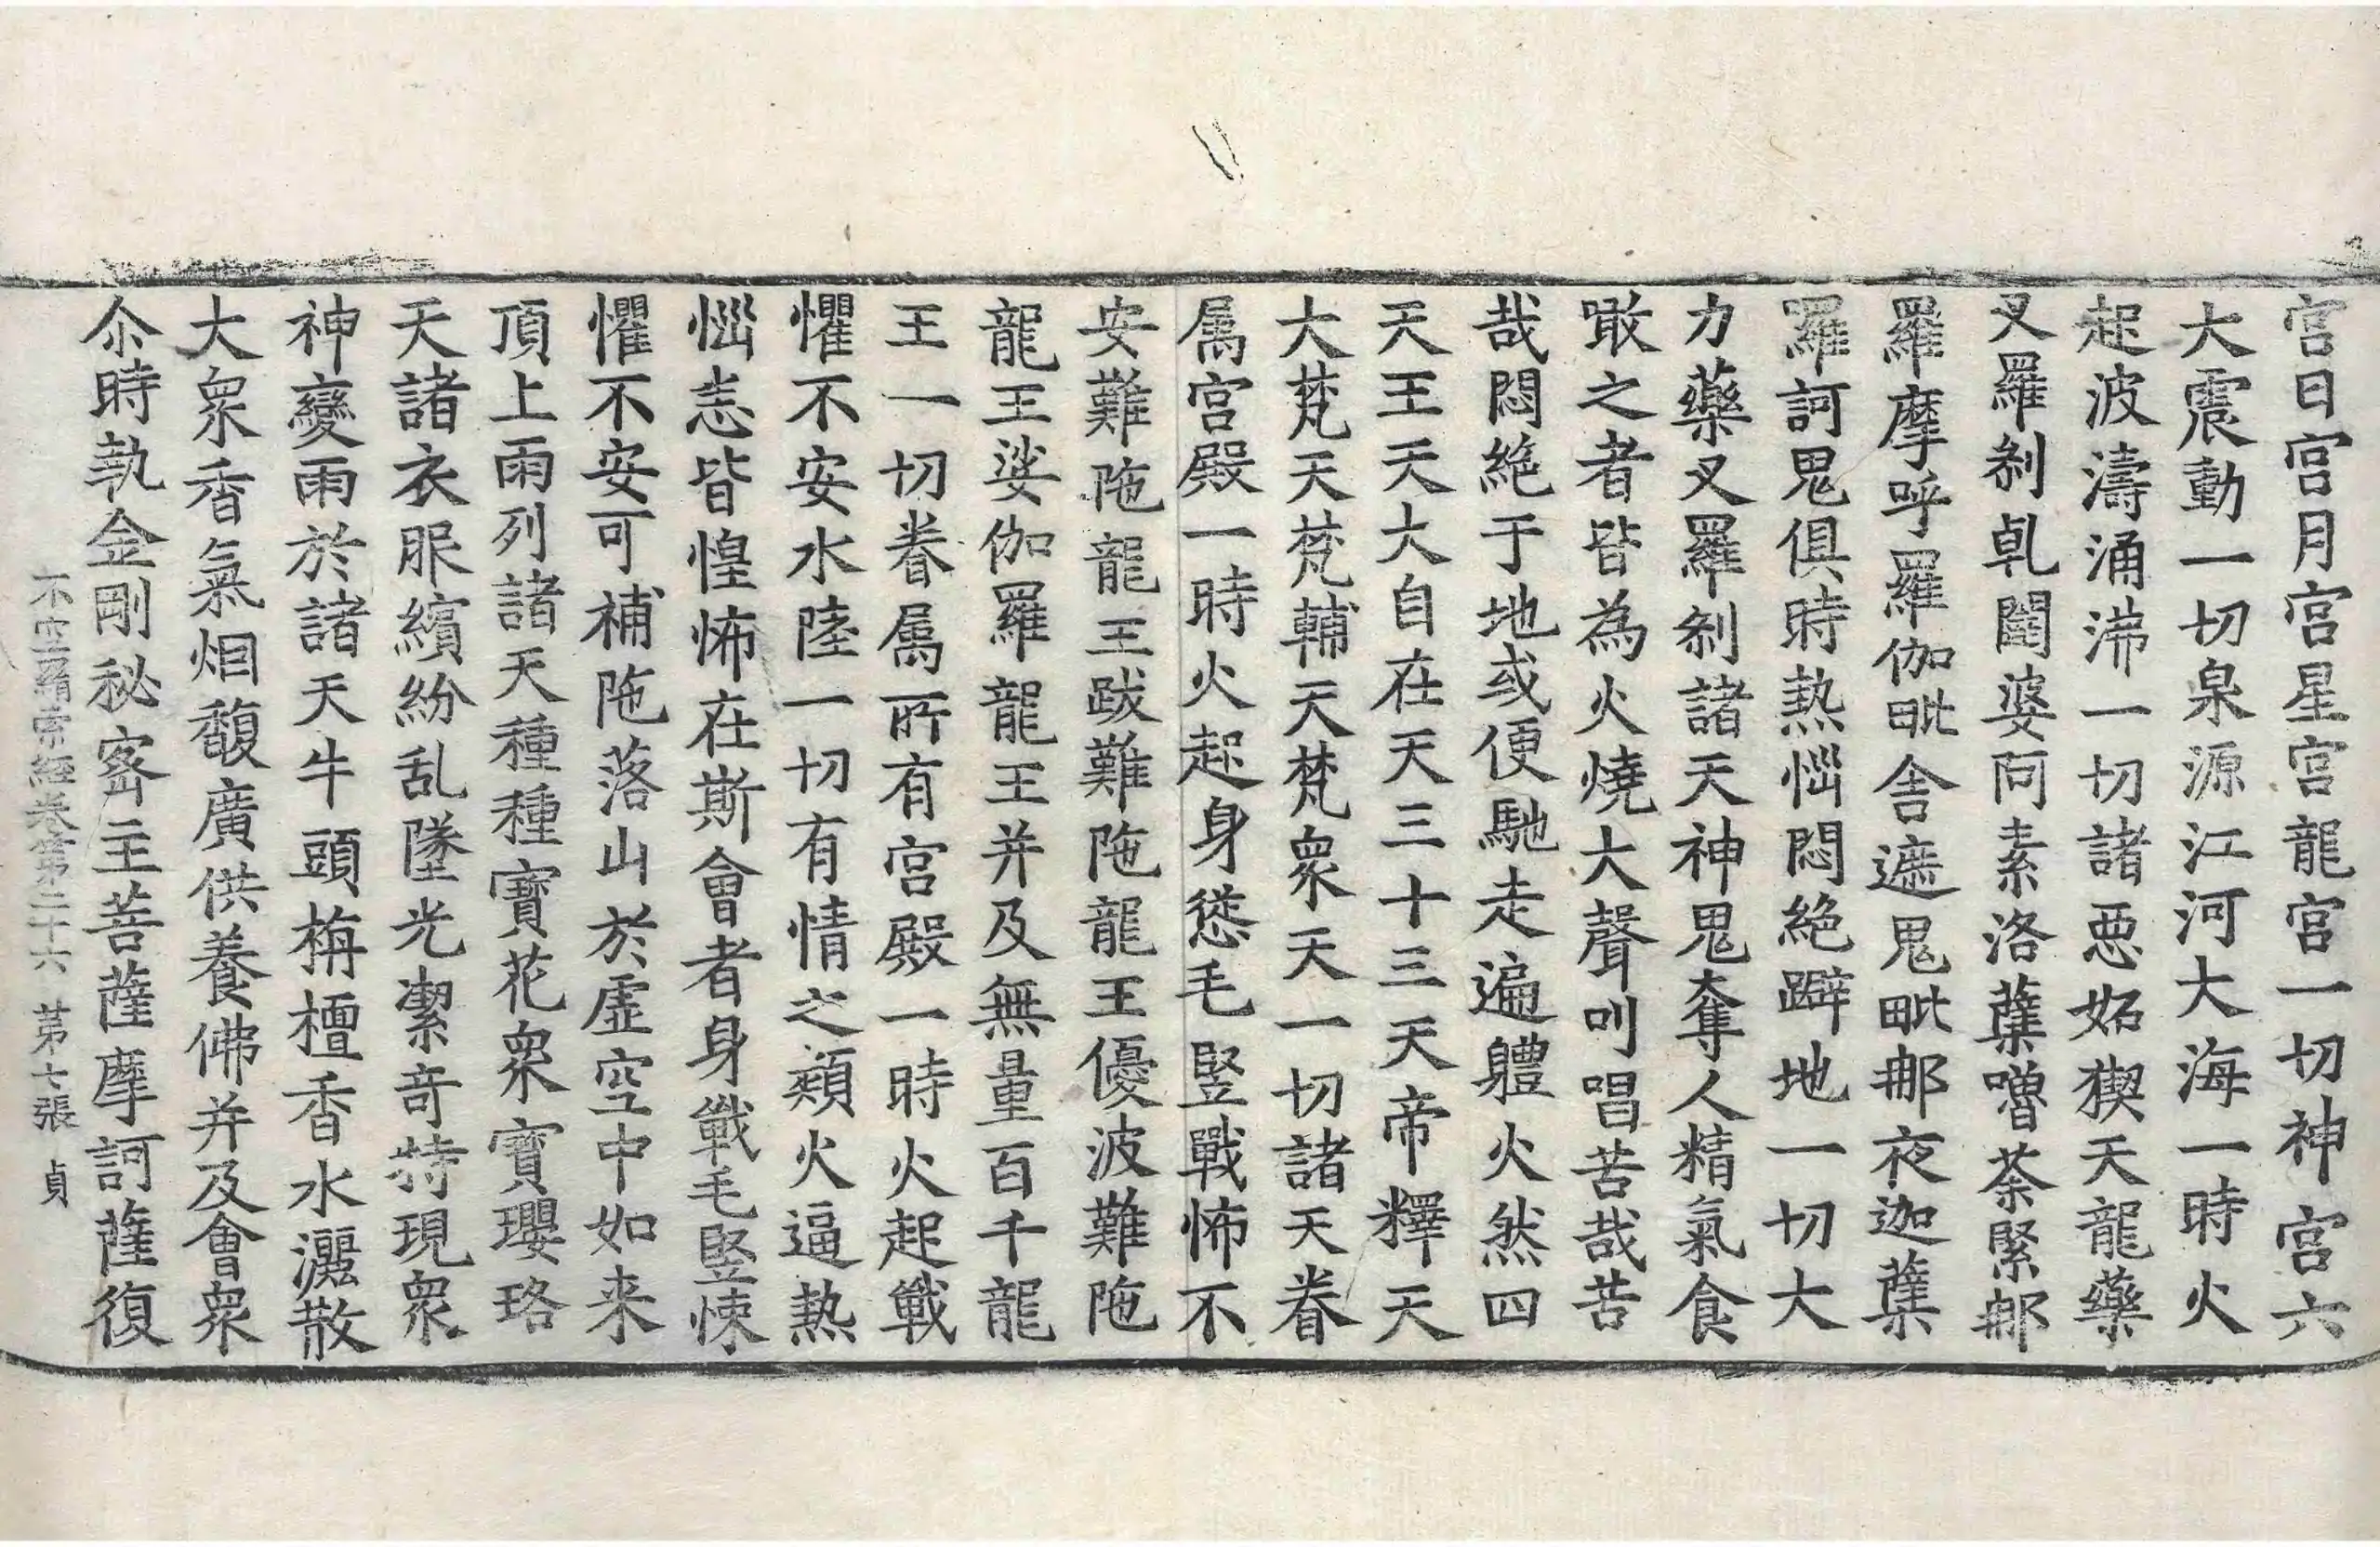 宮日宮月宮星宮龍宮一切神宮六
大震動一切泉源江河大海一時火
起波濤涌沸一切諸惡妬猰天龍藥
叉羅剎乹闥婆阿素洛蘗嚕荼緊那
羅摩呼羅伽毗舍遮鬼毗那夜迦蘗
羅訶鬼俱時熱惱悶絕躃地一切大
力藥叉羅剎諸天神鬼奪人精氣食
噉之者皆為火燒大聲叫唱苦哉苦
哉悶絕于地或便馳走遍體火然四
天王天大自在天三十三天帝釋天
大梵天梵輔天梵衆天一切諸天眷
属宮殿一時火起身慫毛竪戰怖不
安難陁龍王跋難陁龍王優波難陁
龍王娑伽羅龍王并及無量百千龍
王一切眷属所有宮殿一時火起戰
懼不安水陸一切有情之類火逼熱
惱恚皆惶怖在斯會者身戰毛竪悚
懼不安可補陁落山於虛空中如来
頂上雨列諸天種種寶花衆寶瓔珞
天諸衣服繽紛乱墜光潔奇特現衆
神變雨於諸天牛頭栴檀香水灑散
大衆香氣烟馥廣供養佛并及會衆
尒時執金剛秘密主菩薩摩訶薩復
不空羂索經卷第二十六 第七張 貞